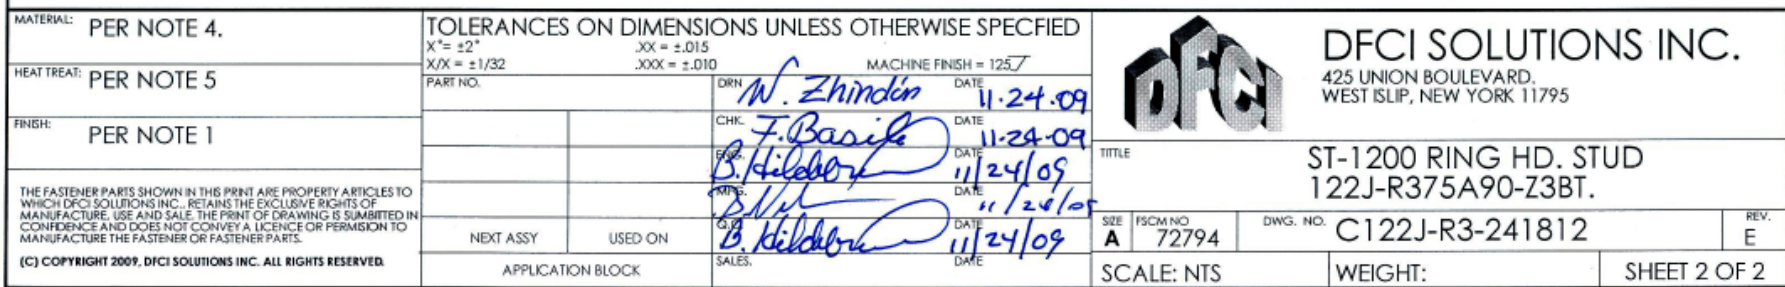 MATERIAL: PER NOTE 4.
HEAT TREAT: PER NOTE 5
FINISH: PER NOTE 1
THE FASTENER PARTS SHOWN IN THIS PRINT ARE PROPERTY ARTICLES TO
WHICH DFCI SOLUTIONS INC., RETAINS THE EXCLUSIVE RIGHTS OF
MANUFACTURE, USE AND SALE. THE PRINT OF DRAWING IS SUMBITTED IN
CONFIDENCE AND DOES NOT CONVEY A LICENCE OR PERMISION TO
MANUFACTURE THE FASTENER OR FASTENER PARTS.
(C) COPYRIGHT 2009, DFCI SOLUTIONS INC. ALL RIGHTS RESERVED.
TOLERANCES ON DIMENSIONS UNLESS OTHERWISE SPECFIED
X°= ±2° .XX = ±.015
X/X = ±1/32 .XXX = ±.010 MACHINE FINISH = 125
PART NO.
NEXT ASSY USED ON
APPLICATION BLOCK
DRN W. Zhindón DATE 11-24-09
CHK. F. Basile DATE 11-24-09
ENG. B. DATE 11/24/09
MFG. DATE
Q.C. B. 11/24/09
SALES. DATE
DFCI
DFCI SOLUTIONS INC.
425 UNION BOULEVARD.
WEST ISLIP, NEW YORK 11795
TITTLE
ST-1200 RING HD. STUD
122J-R375A90-Z3BT.
SIZE A FSCM NO 72794 DWG. NO. C122J-R3-241812 REV. E
SCALE: NTS WEIGHT: SHEET 2 OF 2